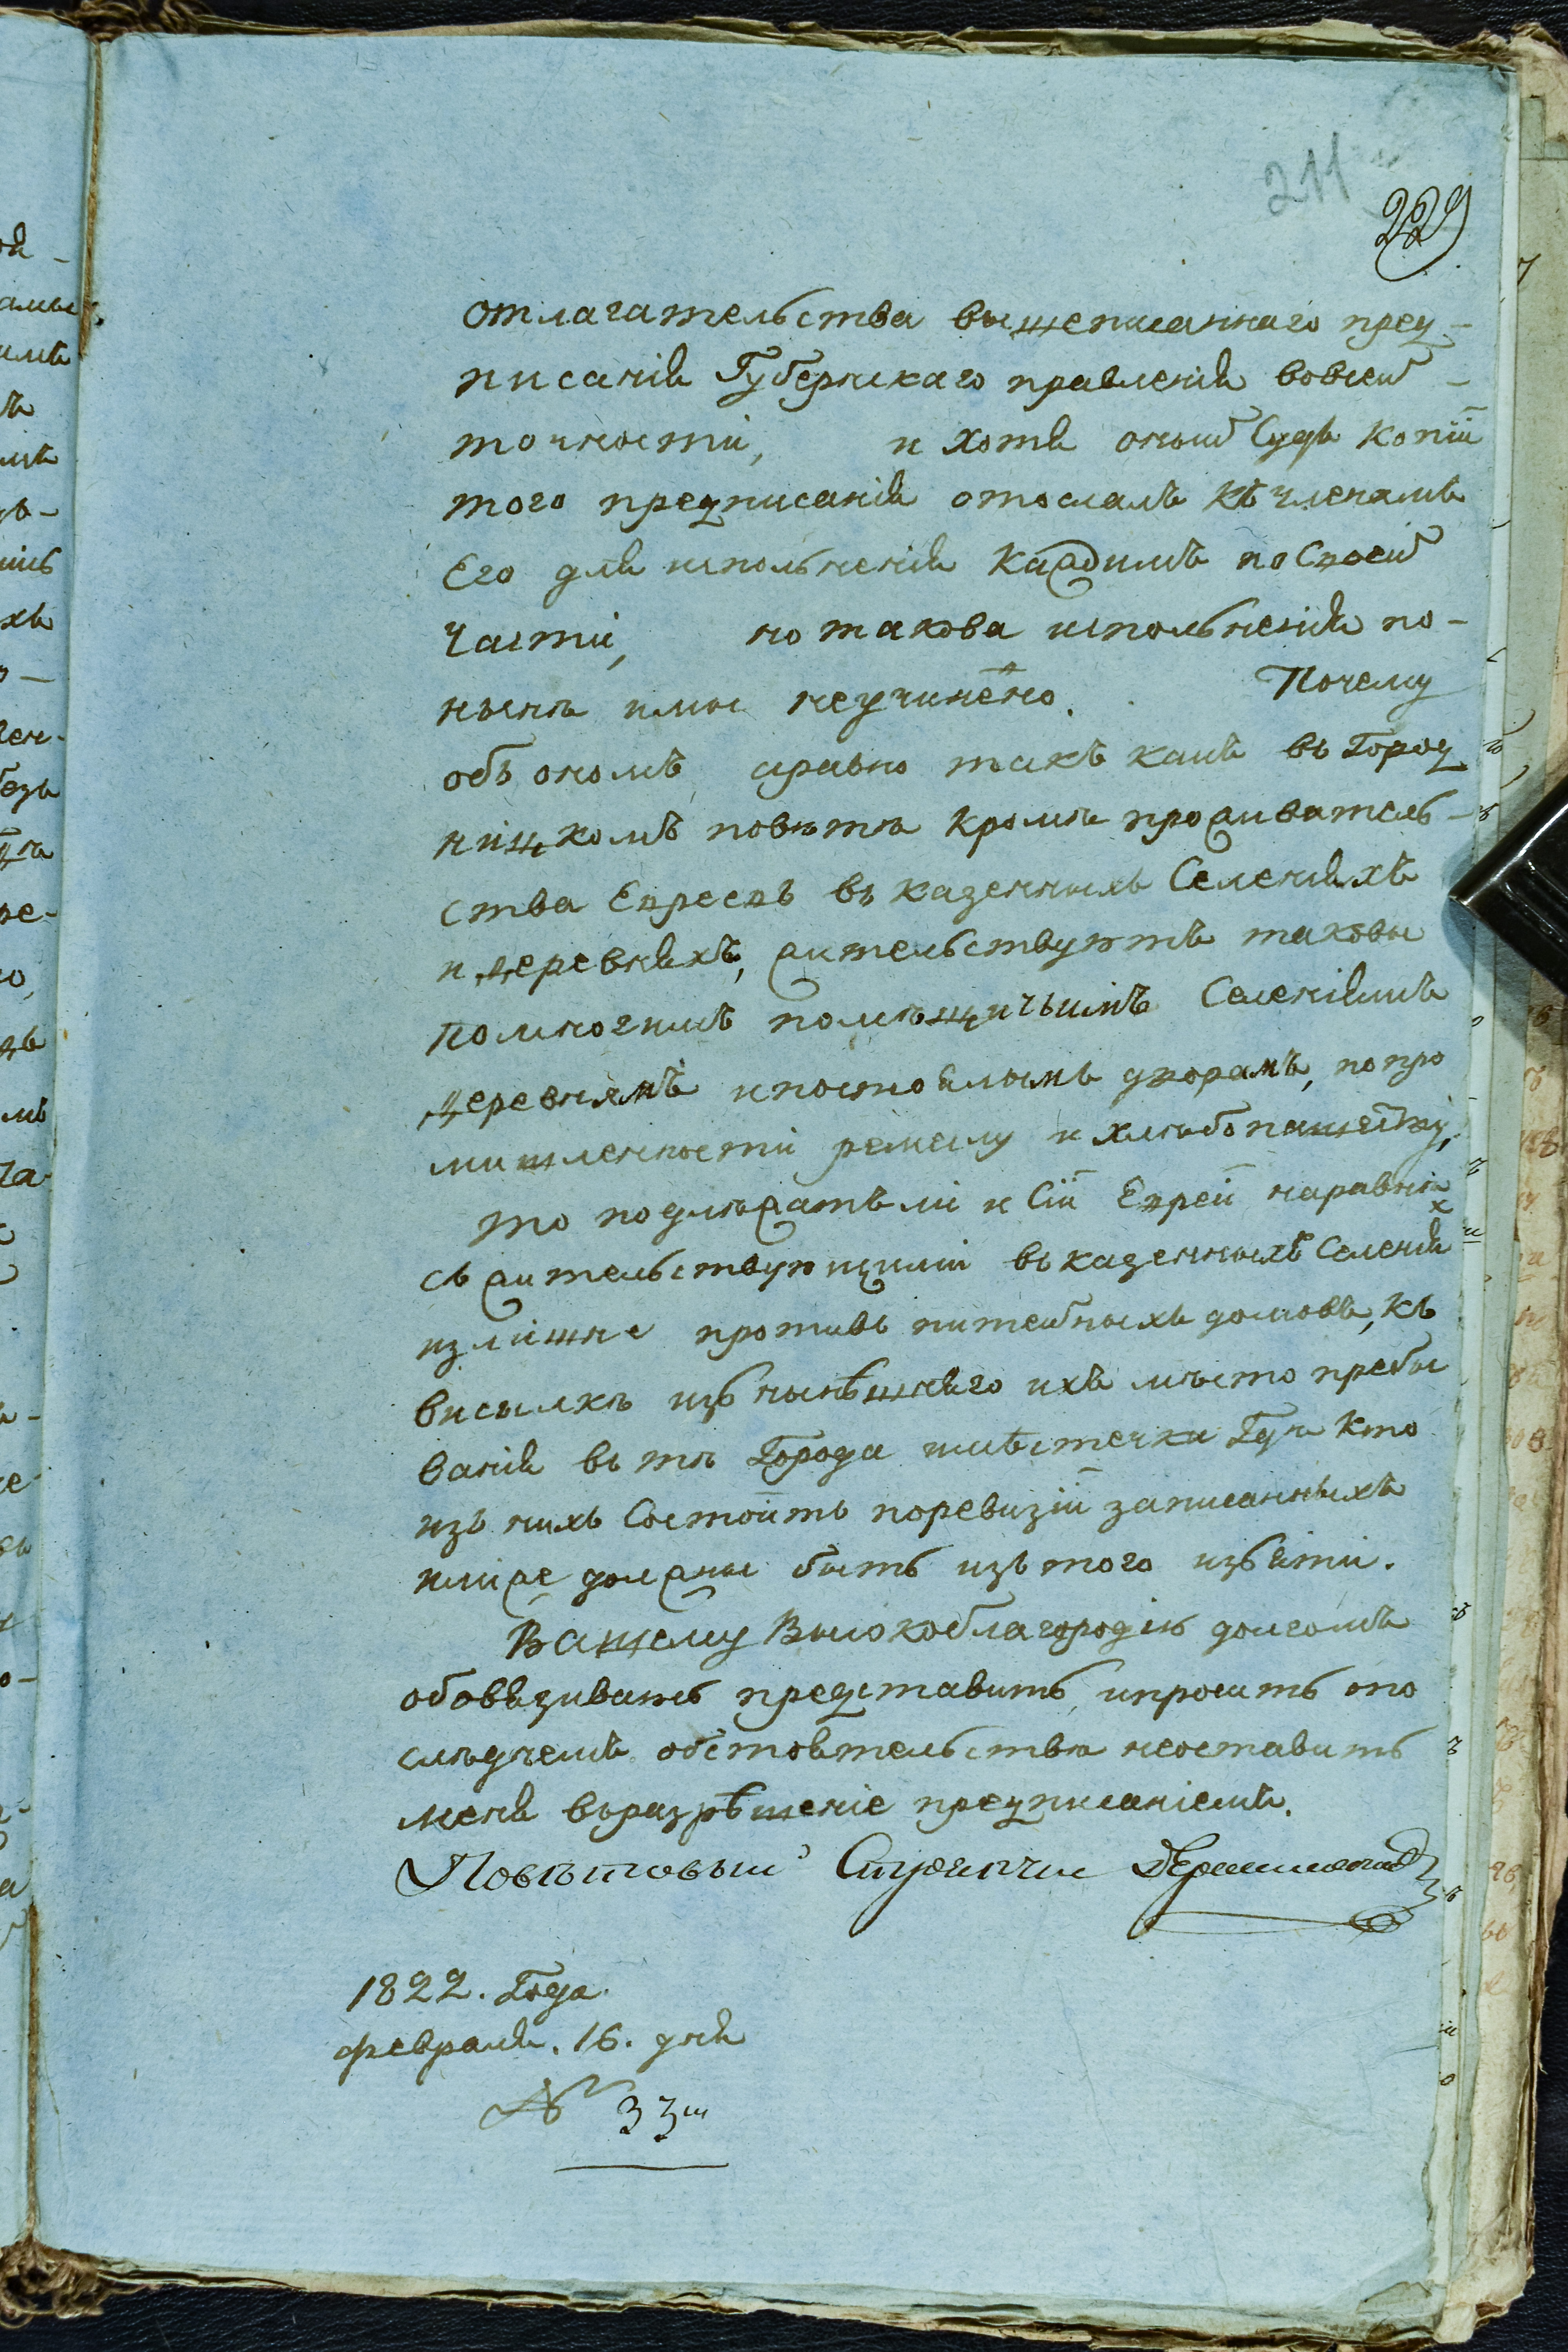 211
229
отлагательства вышеписаннаго пред-
писанія Губернскаго правленія вовсей-
точности, и хотя оный Судъ копіи
того предписанія отослалъ къ членамъ
Его для исполненія каждимъ по Своей
части, но такова исполненія по-
нынѣ ими неучинено. Почему
объ ономъ, аравно такъ какъ въ Город
ницкомъ повѣтѣ кромѣ проживатель-
ства Евреевъ въ казенныхъ Селеніяхъ
и деревняхъ, жительствуютъ таковы
помногимъ помѣщичьимъ Селеніямъ
деревнямъ и постоялымъ дворамъ, по про
мишленности ремеслу и хлѣбопашеству,
то подлѣжатъ ли и Сіи Евреи наравнѣ
съ жительствующими въ казенныхъ Селенія х
излишне противъ питейныхъ домовъ, къ
висылкѣ изъ нынѣшнего ихъ мѣсто пребы
ванія въ тѣ Города и мѣстечки Гдѣ кто
изъ нихъ Состоитъ поревизіи записанныхъ
или же должны быть изъ того изъяти.
Вашему Высокоблагородію долгомъ
обовязиваюсь представить, и просить опо
слѣдуемъ обстоятельства неоставить
меня въразрѣшеніе предписаніемъ.
Повѣтовый Стряпчи
1822. Года.
февраля. 16. дня
№ 33